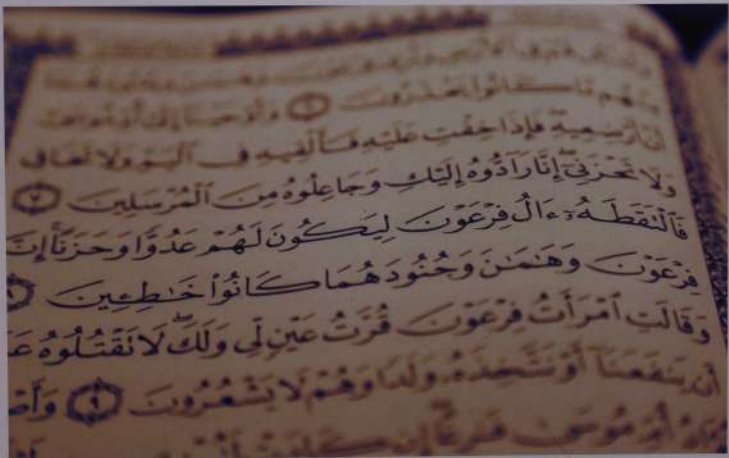 مِنْهُم مَّا كَانُوا۟ يَحْذَرُونَ ۝٦ وَأَوْحَيْنَآ إِلَىٰٓ أُمِّ مُوسَىٰٓ
أَنْ أَرْضِعِيهِ فَإِذَا خِفْتِ عَلَيْهِ فَأَلْقِيهِ فِى ٱلْيَمِّ وَلَا تَخَافِى
وَلَا تَحْزَنِىٓ إِنَّا رَآدُّوهُ إِلَيْكِ وَجَاعِلُوهُ مِنَ ٱلْمُرْسَلِينَ ۝٧
فَٱلْتَقَطَهُۥٓ ءَالُ فِرْعَوْنَ لِيَكُونَ لَهُمْ عَدُوًّا وَحَزَنًا إِنَّ
فِرْعَوْنَ وَهَٰمَٰنَ وَجُنُودَهُمَا كَانُوا۟ خَٰطِـِٔينَ ۝٨
وَقَالَتِ ٱمْرَأَتُ فِرْعَوْنَ قُرَّتُ عَيْنٍ لِّى وَلَكَ لَا تَقْتُلُوهُ
أَن يَنفَعَنَآ أَوْ نَتَّخِذَهُۥ وَلَدًا وَهُمْ لَا يَشْعُرُونَ ۝٩